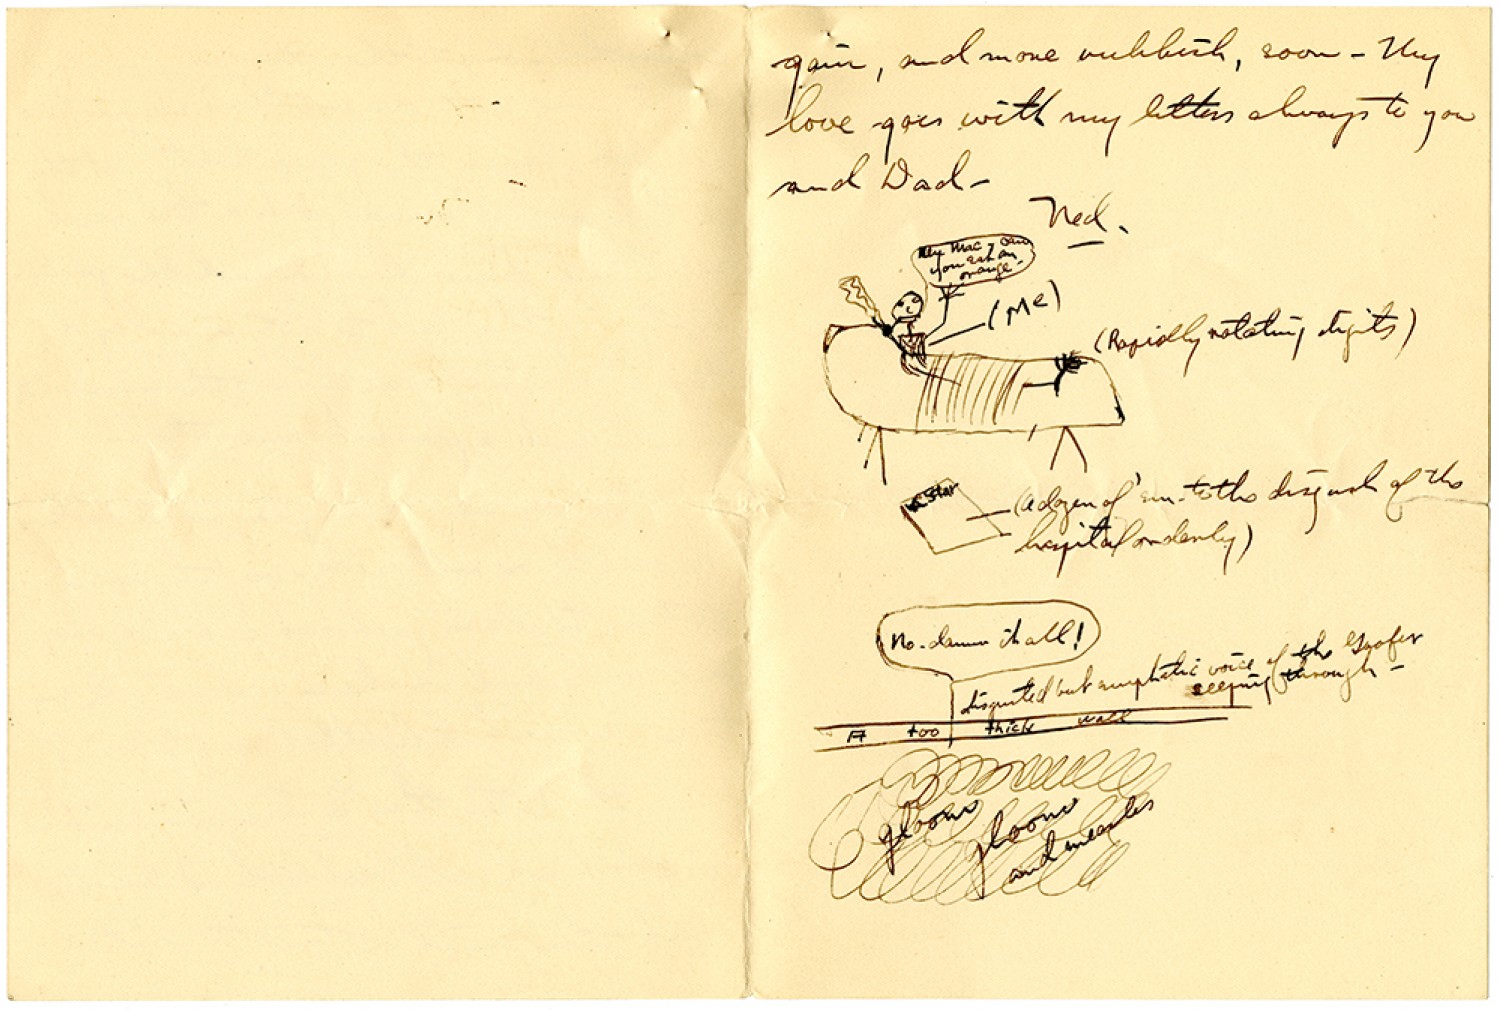 gain, and more rubbish, soon – My
love goes with my letters always to you
and Dad –
Ned.
Hey Mac, can
you eat an
orange –
(Me)
(Rapidly rotating digits)
Star
(a dozen of 'em – to the disgust of the
hospital orderly)
No – damn it all!
disgusted but emphatic voice of the Goofer
seeping through –
A too thick wall
gloom
gloom
and measles